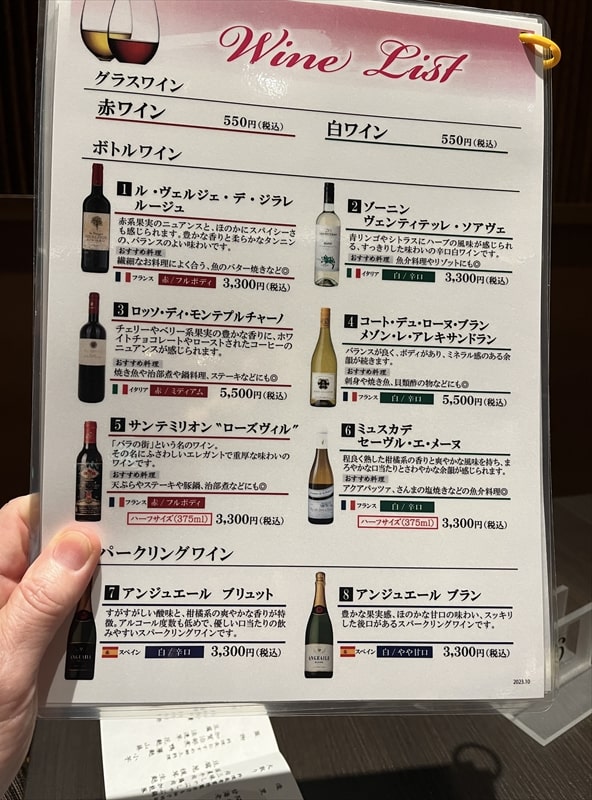 Wine List
グラスワイン
赤ワイン 550円(税込)
白ワイン 550円(税込)
ボトルワイン
1 ル・ヴェルジェ・デ・ジラレ
ルージュ
赤系果実のニュアンスと、ほのかにスパイシーさ
も感じられます。豊かな香りと柔らかなタンニン
の、バランスのよい味わいです。
おすすめ料理
繊細なお料理によく合う、魚のバター焼きなど◎
フランス 赤/フルボディ 3,300円(税込)
2 ゾーニン
ヴェンティテッレ・ソアヴェ
青リンゴやシトラスにハーブの風味が感じられ
る、すっきりした味わいの辛口白ワインです。
おすすめ料理 魚介料理やリゾットにも◎
イタリア 白/辛口 3,300円(税込)
3 ロッソ・ディ・モンテプルチャーノ
チェリーやベリー系果実の豊かな香りに、ホワ
イトチョコレートやローストされたコーヒーの
ニュアンスが感じられます。
おすすめ料理
焼魚や治部煮や鍋料理、ステーキなどにも◎
イタリア 赤/ミディアム 5,500円(税込)
4 コート・デュ・ローヌ・ブラン
メゾン・レ・アレキサンドラン
バランスが良く、ボディがあり、ミネラル感のある余
韻が続きます。
おすすめ料理
刺身や焼き魚、貝類酢の物などにも◎
フランス 白/辛口 5,500円(税込)
5 サンテミリオン“ローズヴィル”
「バラの街」という名のワイン。
その名にふさわしいエレガントで重厚な味わいの
ワインです。
おすすめ料理
天ぷらやステーキや豚鍋、治部煮などにも◎
フランス 赤/フルボディ
ハーフサイズ(375ml) 3,300円(税込)
6 ミュスカデ
セーヴル・エ・メーヌ
程良く熟した柑橘系の香りと爽やかな風味を持ち、ま
ろやかな口当たりとさわやかな余韻が感じられます。
おすすめ料理
アクアパッツァ、さんまの塩焼きなどの魚介料理◎
フランス 白/辛口
ハーフサイズ(375ml) 3,300円(税込)
パークリングワイン
7 アンジュエール ブリュット
すがすがしい酸味と、柑橘系の爽やかな香りが特
徴。アルコール度数も低めで、優しい口当たりの飲
みやすいスパークリングワインです。
スペイン 白/辛口 3,300円(税込)
8 アンジュエール ブラン
豊かな果実感、ほのかな甘口の味わい、スッキリ
した後口があるスパークリングワインです。
スペイン 白/やや甘口 3,300円(税込)
2023.10